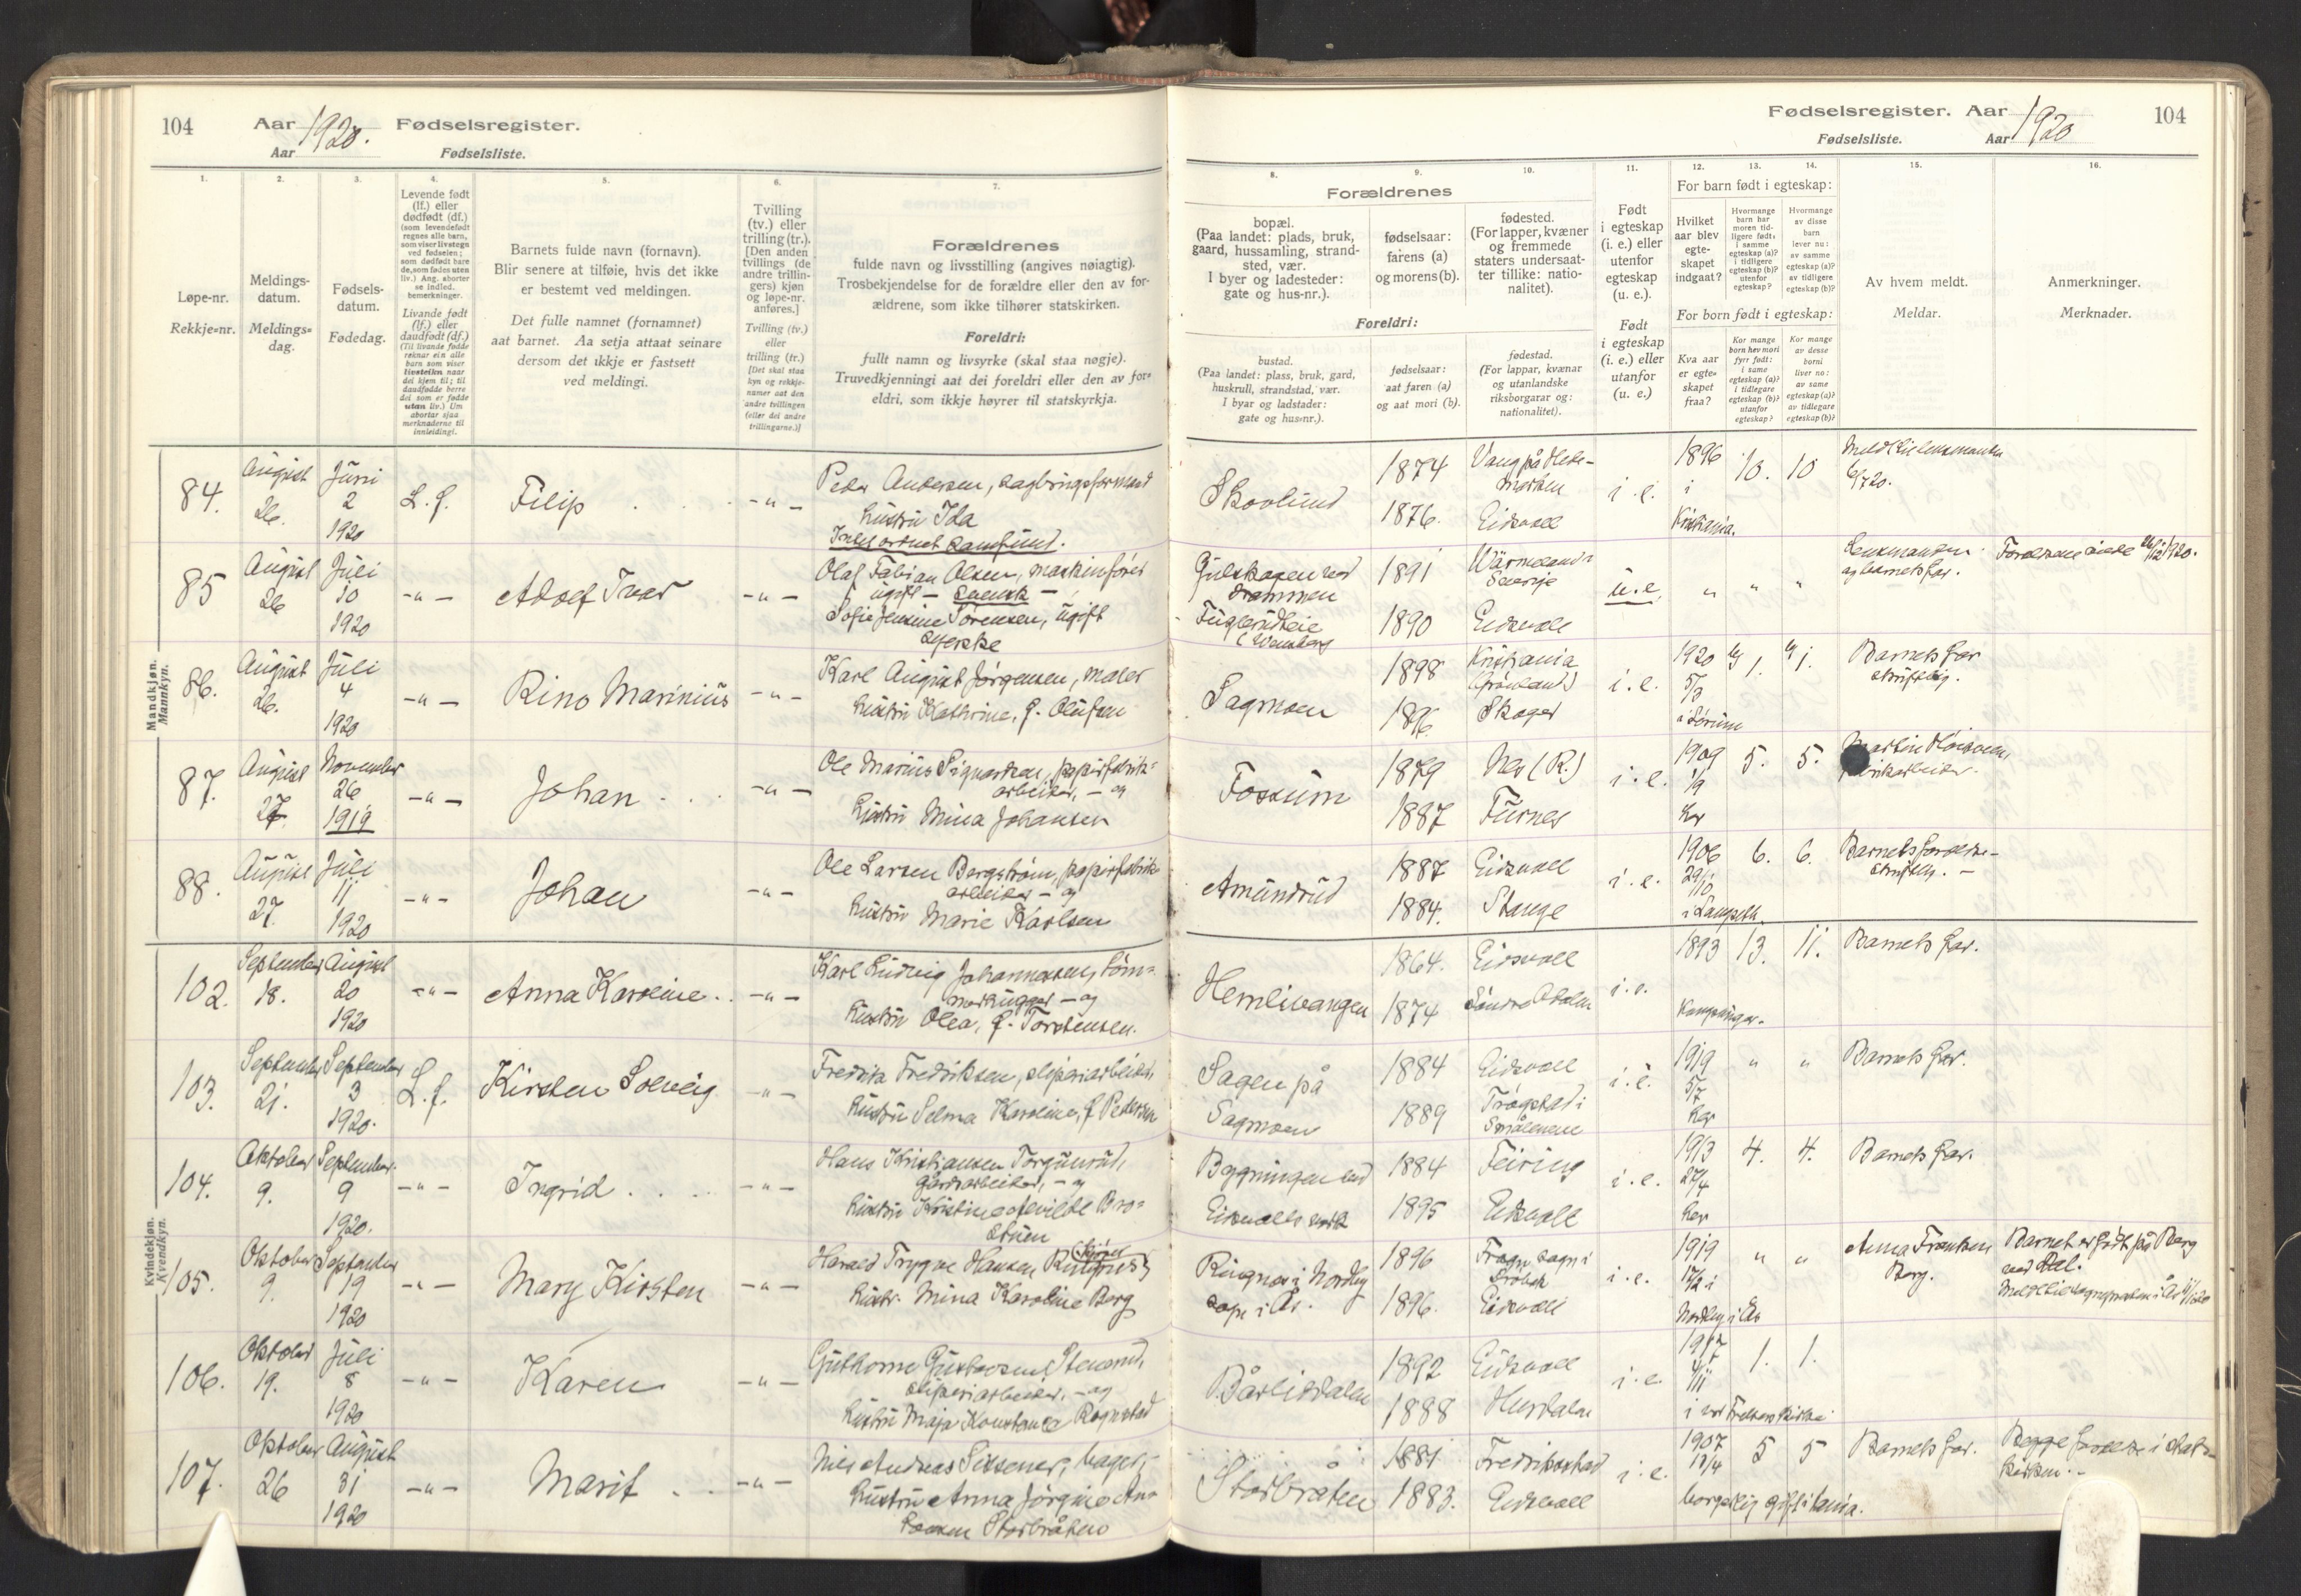 104
Aar 1920.
Fødselsregister.
Aar
Fødselsliste.
1.
2.
3.
4.
5.
6.
7.
Løpe-nr.
Rekkje-nr.
Meldings-
datum.
Meldings-
dag.
Fødsels-
datum.
Fødedag.
Levende født
(lf.) eller
dødfødt (df.)
(som levendefødt
regnes alle barn,
som viser livstegn
ved fødselen;
som dødfødt bare
de, som fødes uten
liv.) Ang. aborter
se indled.
bemerkninger.
Livande født
(lf.) eller
daudfødt (df.)
(Til livande fødde
reknar ein alle
barn som viser
livsteikn naar
dei kjem til; til
daudfødde berre
dei som er fødde
utan liv.) Um
abortar sjaa
merknaderne til
innleidingi.
Barnets fulde navn (fornavn).
Blir senere at tilføie, hvis det ikke
er bestemt ved meldingen.
Det fulle namnet (fornamnet)
aat barnet. Aa setja attaat seinare
dersom det ikkje er fastsett
ved meldingi.
Tvilling
(tv.) eller
trilling (tr.).
[Den anden
tvillings (de
andre trillin-
gers) kjøn
og løpe-nr.
anføres.]
Tvilling (tv.)
eller
trilling (tr.)
[Det skal staa
kyn og rekkje-
numer aat den
andre tvillingen
(eller dei andre
trillingarne.)]
Forældrenes
fulde navn og livsstilling (angives nøiagtig).
Trosbekjendelse for de forældre eller den av for-
ældrene, som ikke tilhører statskirken.
Foreldri:
fullt namn og livsyrke (skal staa nøgje).
Truvedkjenningi aat dei foreldri eller den av for-
eldri, som ikkje høyrer til statskyrkja.
Mandkjøn.
Mannkyn.
84.
August
26.
Juni
2
1920
L.f.
Filip
-"-
Peder Andersen, sagbruksformand
hustru Ida
85
August
26
Juli
10
1920
-"-
Adolf Ivar
-"-
Olaf Fabian Olsen, maskinfører
ugift - svensk -
Sofie Jensine Sørensen, ugift
syerske
86.
August
26.
Juli
4
1920
-"-
Rino Marinius
-"-
Karl August Jørgensen, maler
hustru Kathrine, f. Olufsen
87.
August
27.
November
26
1919
-"-
Johan
-"-
Ole Marius Sigvardsen, papirfabrik-
arbeider, - og
hustru Mina Johansen
88.
August
27.
Juli
11
1920
-"-
Johan
-"-
Ole Larsen Bergstrøm, papirfabrik-
arbeider - og
hustru Marie Karlsen
Kvindekjøn.
Kvendkyn.
102.
September
18.
August
20
1920
-"-
Anna Karoline
-"-
Karl Ludvig Johannessen, tøm-
merhugger - og
hustru Olea, f. Torstensen.
103.
September
21.
September
3
1920.
L.f.
Kirsten Solveig
-"-
Fredrik Fredriksen, sliperiarbeider,
hustru Selma Karoline, f. Pedersen
104.
Oktober
9.
September
9
1920.
-"-
Ingrid
-"-
Hans Kristiansen Torgunrud,
gårdsarbeider, - og
hustru Kristine Bro-
105.
Oktober
9.
September
19
1920
-"-
Mary Kirsten
-"-
Harald Trygve Hansen Ringnes
hustr. Mina Karoline Berg
106.
Oktober
19.
Juli
8
1920
-"-
Karen
-"-
Guthorm Gustavsen Stensrud,
sliperiarbeider, - og
hustru Maja Konstance Rognstad
107.
Oktober
26
August
31
1920
-"-
Marit
-"-
Nils Andreas Sissener, bager,
hustru Anna Jørgine
Storbråten
Fødselsregister. Aar 1920
104
Fødselsliste.
Aar
8.
9.
10.
11.
12.
13.
14.
15.
16.
Forældrenes
bopæl.
(Paa landet: plads, bruk,
gaard, hussamling, strand-
sted, vær.
I byer og ladesteder:
gate og hus-nr.).
fødselsaar:
farens (a)
og morens (b).
fødested.
(For lapper, kvæner
og fremmede
staters undersaat-
ter tillike: natio-
nalitet).
Foreldri:
bustad.
(Paa landet: plass, bruk, gard,
huskrull, strandstad, vær.
I byar og ladstader:
gate og hus-nr.).
fødselsaar:
aat faren (a)
og aat mori (b).
fødestad.
(For lappar, kvænar
og utanlandske
riksborgarar og:
nationalitet).
Født
i egteskap
(i. e.) eller
utenfor
egteskap
(u. e.).
Født
i egteskap
(i. e.) eller
utanfor
(u. e.)
For barn født i egteskap:
Hvilket
aar blev
egte-
skapet
indgaat?
Hvormange
barn har
moren tid-
ligere født:
i samme
egteskap (a)?
i tidligere
egteskap (b)?
utenfor
egteskap?
Hvormange
av disse
barn
lever nu:
av samme
egteskap (a)?
av tidligere
egteskap (b)?
For born født i egteskap:
Kva aar
er egte-
skapet
fraa?
Kor mange
born hev mori
fyrr født:
i same
egteskap (a)?
i tidlegare
egteskap (b)?
utanfor
egteskap?
Kor mange
av desse
borni
liver no:
av same
egteskap (a)?
av tidlegare
egteskap (b)?
Av hvem meldt.
Meldar.
Anmerkninger.
Merknader.
Skovlund
1874
1876.
Vang på Hede-
marken
Eidsvoll
i.e.
1896
i
Kristiania.
10.
10
Meldt til lensmanden
Gulskogen ved
Drammen
1891
1890
Wärmland
Sverige
Eidsvoll
u.e.
"
"
"
Lensmanden
og barnets far.
Sagmoen
1898
1896
Kristiania
(Grønland)
Skoger
i.e.
1920
5/3
i Sørum
1.
1.
Barnets far
skriftlig.
Fossum
1879
1887
Nes (R.)
Furnes
i.e.
1909
1/9
her
5.
5.
Amundrud
1887
1884.
Eidsvoll
Stange
i.e.
1906
29/10
6.
6.
Barnets forældre
skriftlig. -
Hemlivangen
1864.
1874
Eidsvoll
Søndre Odalen
i.e.
1893
Kongsvinger.
13.
11.
Barnets far.
Sagen på
Sagmoen
1884
1889
Eidsvoll
Trøgstad i
Smålenene
i.e.
1919
5/7
her
"
"
Barnets far.
Bygningen ved
Eidsvolls verk
1884
1895
Feiring
Eidsvoll
i.e.
1913
27/4
her
4.
4.
Barnets far.
Ringnes i Nordby
sogn i Ås.
1896
1896.
Frogn sogn i
Drøbak
Eidsvoll
i.e.
1919
17/2 i
Nordby i Ås
"
"
Anna Fransken
Berg.
Barnet er født på Berg
ved Dal.
Bårlidalen
1892
1888
Eidsvoll
Hurdalen
i.e.
1917
4/11
1.
1.
Storbråten
1881
1883.
Fredrikstad
Eidsvoll
i.e.
1907
13/4
borgerlig gift i Kania.
5
5
Barnets far.
Begge forældre i stats-
kirken. -